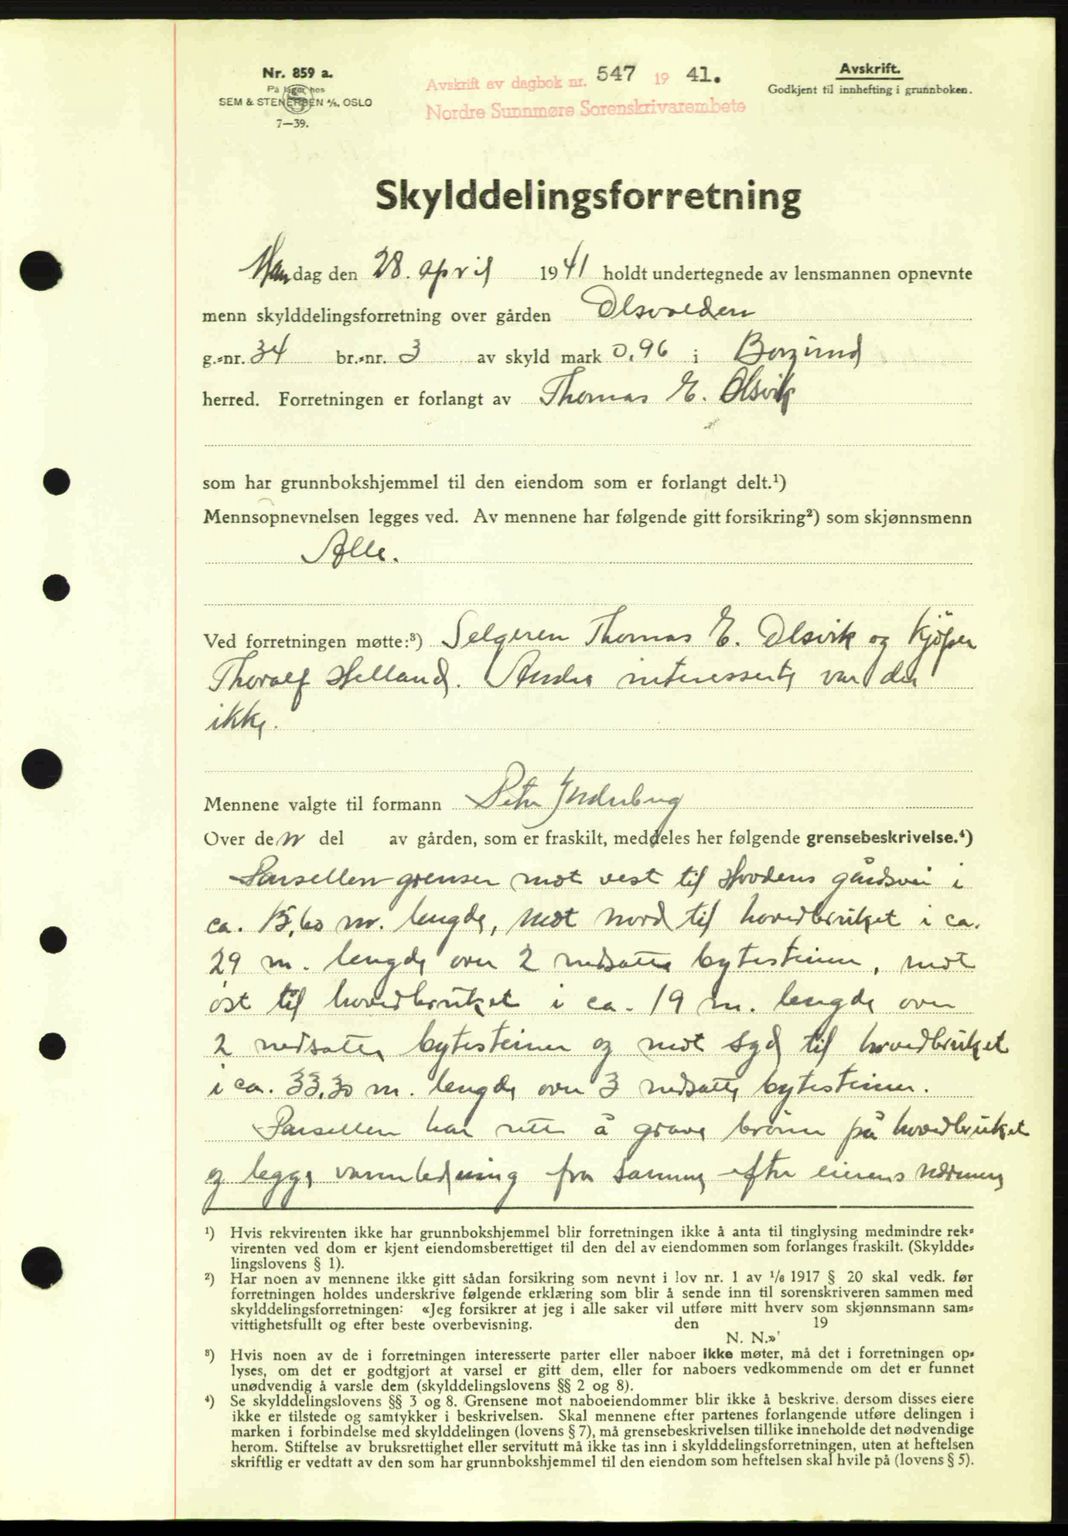 Nr. 859 a.
På lager hos
SEM & STENERSEN A/S, OSLO
7—39.
Avskrift av dagbok nr. 547 19 41.
Nordre Sunnmøre Sorenskrivarembete
Avskrift.
Godkjent til innhefting i grunnboken.
Skylddelingsforretning
Mandag den 28. april 1941 holdt undertegnede av lensmannen opnevnte
menn skylddelingsforretning over gården Olsvolden
g.-nr. 34 br.-nr. 3 av skyld mark 0,96 i Borgund
herred. Forretningen er forlangt av Thomas E. Olsvik
som har grunnbokshjemmel til den eiendom som er forlangt delt.¹)
Mennsopnevnelsen legges ved. Av mennene har følgende gitt forsikring²) som skjønnsmenn
Alle.
Ved forretningen møtte:³) Selgeren Thomas E. Olsvik og kjöper
Thoralf Helland. Andre interesserte var der
ikke.
Mennene valgte til formann Peter
Over den del av gården, som er fraskilt, meddeles her følgende grensebeskrivelse.⁴)
Parsellen grenser mot vest til gårdsvei i
ca. 15,60 m. lengde, mot nord til hovedbruket i ca.
29 m. lengde over 2 nedsatte bytesteiner, mot
öst til hovedbruket i ca. 19 m. lengde over
2 nedsatte bytesteiner og mot syd til hovedbruket
i ca. 33,30 m. lengde over 3 nedsatte bytesteiner.
Parsellen har rett å grave brönn på hovedbruket
og legge vannledning fra samme efter eierens nærmere
¹) Hvis rekvirenten ikke har grunnbokshjemmel blir forretningen ikke å anta til tinglysing medmindre rek-
virenten ved dom er kjent eiendomsberettiget til den del av eiendommen som forlanges fraskilt. (Skyldde-
lingslovens § 1).
²) Har noen av mennene ikke gitt sådan forsikring som nevnt i lov nr. 1 av 1/6 1917 § 20 skal vedk. før
forretningen holdes underskrive følgende erklæring som blir å sende inn til sorenskriveren sammen med
skylddelingsforretningen: «Jeg forsikrer at jeg i alle saker vil utføre mitt hverv som skjønnsmann sam-
vittighetsfullt og efter beste overbevisning. den 19
N. N.»
³) Hvis noen av de i forretningen interesserte parter eller naboer ikke møter, må det i forretningen op-
lyses, om det er godtgjort at varsel er gitt dem, eller for naboers vedkommende om det er funnet
unødvendig å varsle dem (skylddelingslovens §§ 2 og 8).
⁴) Se skylddelingslovens §§ 3 og 8. Grensene mot naboeiendommer blir ikke å beskrive, dersom disses eiere
ikke er tilstede og samtykker i beskrivelsen. Skal mennene efter partenes forlangende utføre delingen i
marken i forbindelse med skylddelingen (lovens § 7), må grensebeskrivelsen tillike inneholde det nødvendige
herom. Stiftelse av bruksrettighet eller servitutt må ikke tas inn i skylddelingsforretningen, uten at heftelsen
skriftlig er vedtatt av den som har grunnbokshjemmel til den eiendom som heftelsen skal hvile på (lovens § 5).